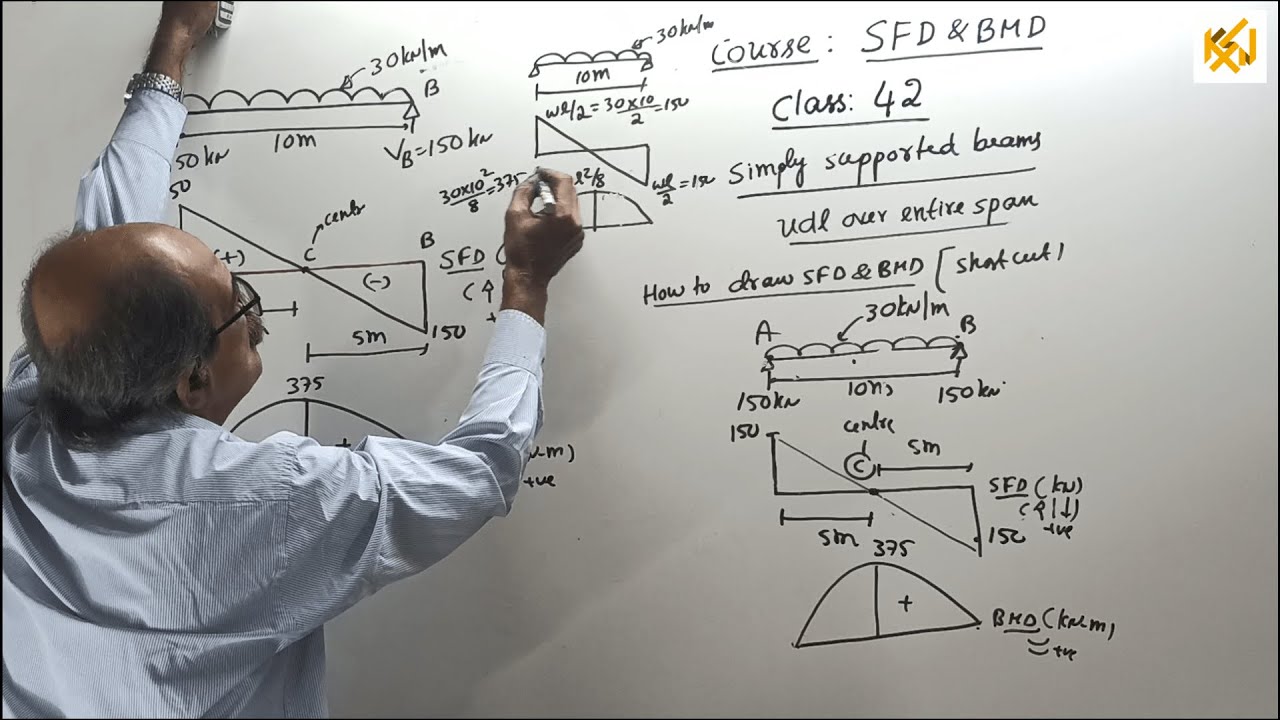 30kN/m
B
10m
50 kN
VB=150 kN
50
(+)
centr
C
B
SFD (
(-)
5m
150
375
+
+ve
30kN/m
10m
wl/2 = 30×10/2 = 150
30×10²/8 = 375
l²/8
wl/2 = 150
Course: SFD & BMD
Class: 42
Simply supported beams
udl over entire span
How to draw SFD & BMD [Shortcut]
30kN/m
A
B
10m
150kN
150kN
centre
150
C
5m
SFD (kN)
(↑|↓)
+ve
150
5m
375
+
BMD (kN.m)
+ve